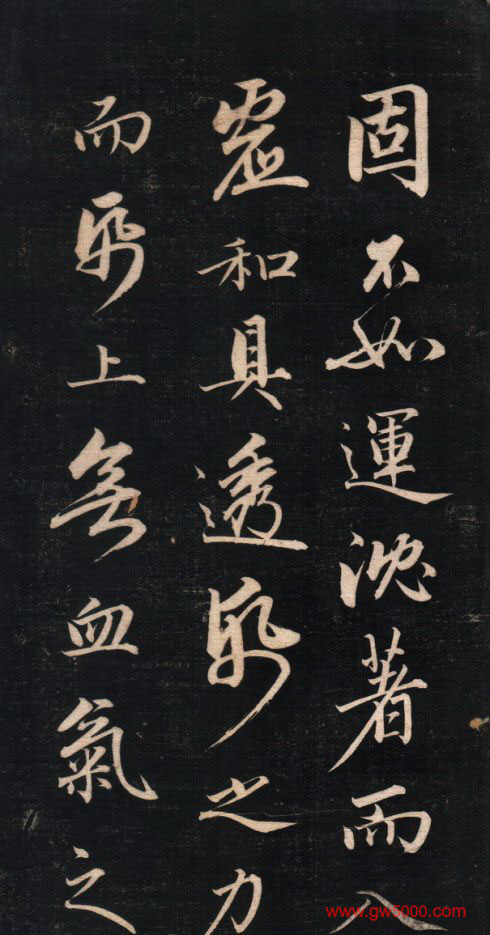 固不如運沈著而入
虛和具透紙之力
而紙上無血氣之
www.gw5000.com